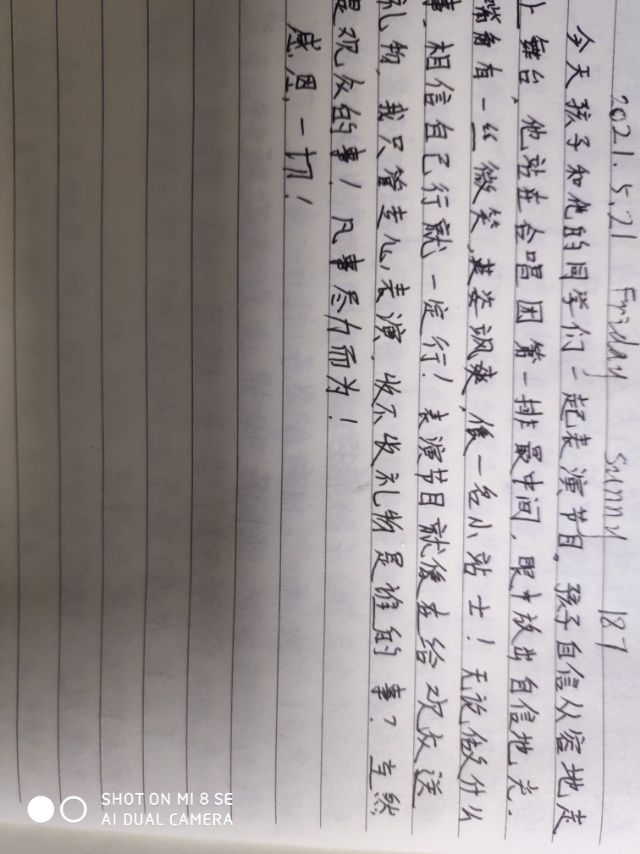 2021.5.21 Friday Sunny 187
今天孩子和他的同学们一起表演节目。孩子自信从容地走
上舞台，他站在合唱团第一排最中间，眼中放出自信地光．
嘴角有一丝微笑，英姿飒爽，像一名小站士！无论做什么
事，相信自己行就一定行！表演节目就像在给观众送
礼物，我只管走心表演，收不收礼物是谁的事？当然
是观众的事！凡事尽力而为！
感恩一切！
SHOT ON MI 8 SE
AI DUAL CAMERA